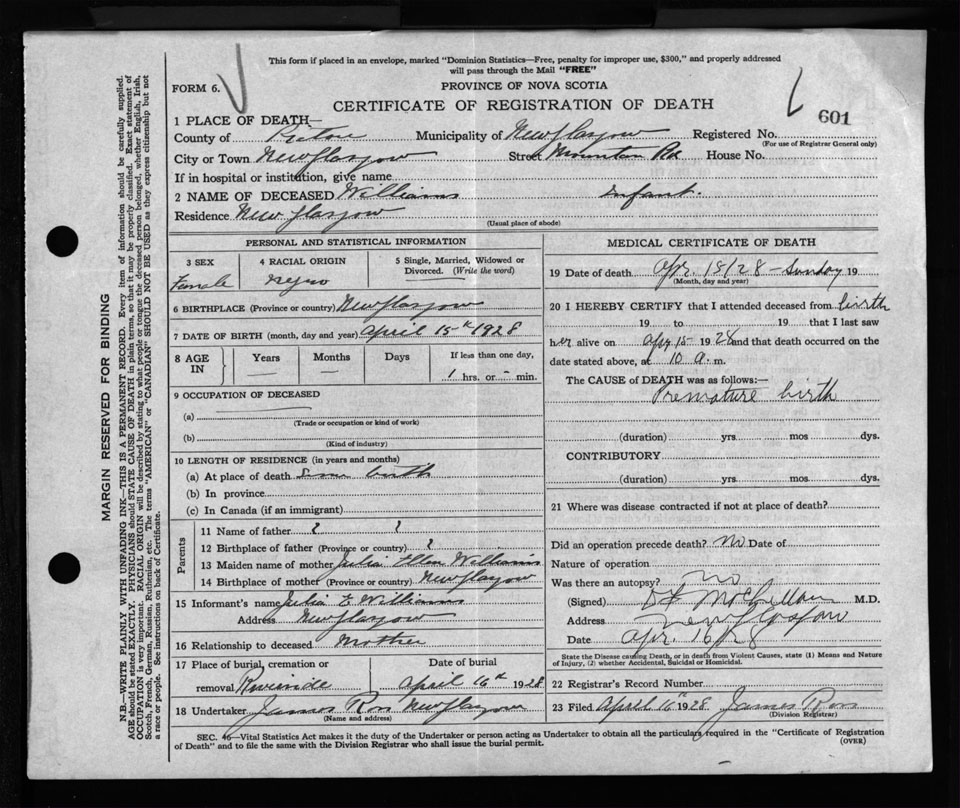 This form if placed in an envelope, marked "Dominion Statistics—Free, penalty for improper use, $300," and properly addressed
will pass through the Mail "FREE"
FORM 6.
PROVINCE OF NOVA SCOTIA
CERTIFICATE OF REGISTRATION OF DEATH
601
1 PLACE OF DEATH—
County of Pictou Municipality of New Glasgow Registered No.
(For use of Registrar General only)
City or Town New Glasgow Street Mountain Rd House No.
If in hospital or institution, give name
2 NAME OF DECEASED Williams Infant.
Residence New Glasgow
(Usual place of abode)
PERSONAL AND STATISTICAL INFORMATION
3 SEX 4 RACIAL ORIGIN 5 Single, Married, Widowed or Divorced. (Write the word)
Female Negro
6 BIRTHPLACE (Province or country) New Glasgow
7 DATE OF BIRTH (month, day and year) April 15th 1928
8 AGE IN Years Months Days If less than one day,
— — 1 hrs. or - min.
9 OCCUPATION OF DECEASED
(a)
(Trade or occupation or kind of work)
(b)
(Kind of industry)
10 LENGTH OF RESIDENCE (in years and months)
(a) At place of death from birth
(b) In province
(c) In Canada (if an immigrant)
Parents
11 Name of father ? ?
12 Birthplace of father (Province or country) ?
13 Maiden name of mother Julia Ellen Williams
14 Birthplace of mother (Province or country) New Glasgow
15 Informant's name Julia E Williams
Address New Glasgow
16 Relationship to deceased Mother
17 Place of burial, cremation or Date of burial
removal Riverside April 16th 1928
18 Undertaker James Ross New Glasgow
(Name and address)
MEDICAL CERTIFICATE OF DEATH
19 Date of death Apr. 15/28 — Sunday 19
(Month, day and year)
20 I HEREBY CERTIFY that I attended deceased from birth
19 to 19 that I last saw
her alive on Apr 15 1928 and that death occurred on the
date stated above, at 10 a. m.
The CAUSE of DEATH was as follows:—
Premature birth
(duration) yrs mos dys.
CONTRIBUTORY
(duration) yrs mos dys.
21 Where was disease contracted if not at place of death?
Did an operation precede death? No Date of
Nature of operation
Was there an autopsy? no
(Signed) M.D.
Address New Glasgow
Date Apr. 16/28
State the Disease causing Death, or in death from Violent Causes, state (1) Means and Nature
of Injury, (2) whether Accidental, Suicidal or Homicidal.
22 Registrar's Record Number
23 Filed April 16th 1928 James Ross
(Division Registrar)
SEC. 46—Vital Statistics Act makes it the duty of the Undertaker or person acting as Undertaker to obtain all the particulars required in the "Certificate of Registration
of Death" and to file the same with the Division Registrar who shall issue the burial permit.
(OVER)
MARGIN RESERVED FOR BINDING
N.B.—WRITE PLAINLY WITH UNFADING INK—THIS IS A PERMANENT RECORD. Every item of information should be carefully supplied.
AGE should be stated EXACTLY. PHYSICIANS should STATE CAUSE OF DEATH in plain terms, so that it may be properly classified. Exact statement of
OCCUPATION is very important. RACIAL ORIGIN will be described by stating to what people or tongue the deceased person belonged, whether English, Irish,
Scotch, French, German, Russian, Ruthenian, etc. The terms "AMERICAN" or "CANADIAN" SHOULD NOT BE USED as they express citizenship but not
a race or people. See instructions on back of Certificate.